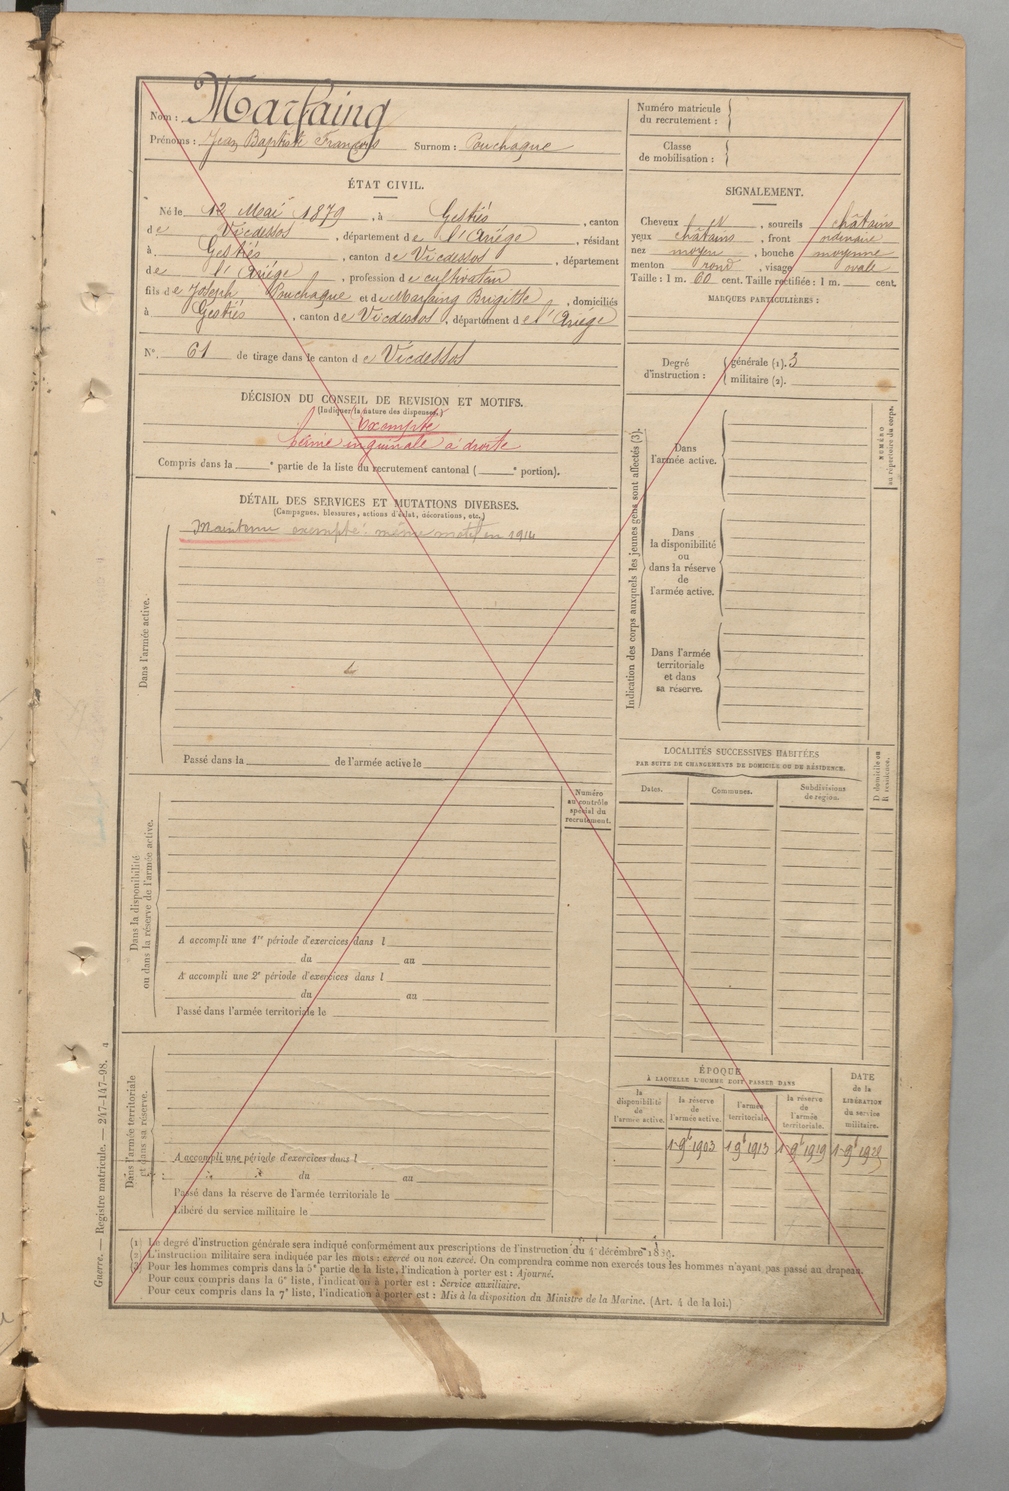 Nom : Marfaing
Prénoms : Jean Baptiste François Surnom : Couchaque
Numéro matricule
du recrutement :
Classe
de mobilisation :
ÉTAT CIVIL.
Né le 12 Mai 1879, à Gestiès, canton
de Vicdessos, département de l'Ariège, résidant
à Gestiès, canton de Vicdessos, département
de l'Ariège, profession de cultivateur
fils de Joseph Couchaque et de Marfaing Brigitte, domiciliés
à Gestiès, canton de Vicdessos, département de l'Ariège
N° 61 de tirage dans le canton de Vicdessos
SIGNALEMENT.
Cheveux et, sourcils châtains
yeux châtains, front ordinaire
nez moyen, bouche moyenne
menton rond, visage ovale
Taille : 1 m. 60 cent. Taille rectifiée : 1 m. cent.
MARQUES PARTICULIÈRES :
Degré
d'instruction :
générale (1). 3
militaire (2).
DÉCISION DU CONSEIL DE REVISION ET MOTIFS.
(Indiquer la nature des dispenses.)
Exempté
hernie inguinale à droite
Compris dans la e partie de la liste du recrutement cantonal ( e portion).
DÉTAIL DES SERVICES ET MUTATIONS DIVERSES.
(Campagnes, blessures, actions d'éclat, décorations, etc.)
Dans l'armée active.
Maintenu exempté même motif en 1914
Passé dans la de l'armée active le
Indication des corps auxquels les jeunes gens sont affectés (3).
NUMÉRO
au répertoire du corps.
Dans
l'armée active.
Dans
la disponibilité
ou
dans la réserve
de
l'armée active.
Dans l'armée
territoriale
et dans
sa réserve.
Dans la disponibilité
ou dans la réserve de l'armée active.
Numéro
au contrôle
spécial du
recrutement.
A accompli une 1re période d'exercices dans l
du au
A accompli une 2e période d'exercices dans l
du au
Passé dans l'armée territoriale le
LOCALITÉS SUCCESSIVES HABITÉES
PAR SUITE DE CHANGEMENTS DE DOMICILE OU DE RÉSIDENCE.
D domicile ou
R résidence.
Dates.
Communes.
Subdivisions
de région.
Dans l'armée territoriale
et dans sa réserve.
A accompli une période d'exercices dans l
du au
Passé dans la réserve de l'armée territoriale le
Libéré du service militaire le
ÉPOQUE
À LAQUELLE L'HOMME DOIT PASSER DANS
la
disponibilité
de
l'armée active.
la réserve
de
l'armée active.
l'armée
territoriale.
la réserve
de
l'armée
territoriale.
DATE
de la
LIBÉRATION
du service
militaire.
1 9bre 1903 1 9bre 1913 1 9bre 1919
(1) Le degré d'instruction générale sera indiqué conformément aux prescriptions de l'instruction du 4 décembre 1889.
(2) L'instruction militaire sera indiquée par les mots : exercé ou non exercé. On comprendra comme non exercés tous les hommes n'ayant pas passé au drapeau.
(3) Pour les hommes compris dans la 5e partie de la liste, l'indication à porter est : Ajourné.
Pour ceux compris dans la 6e liste, l'indication à porter est : Service auxiliaire.
Pour ceux compris dans la 7e liste, l'indication à porter est : Mis à la disposition du Ministre de la Marine. (Art. 4 de la loi.)
Guerre. — Registre matricule. — 247-147-98.